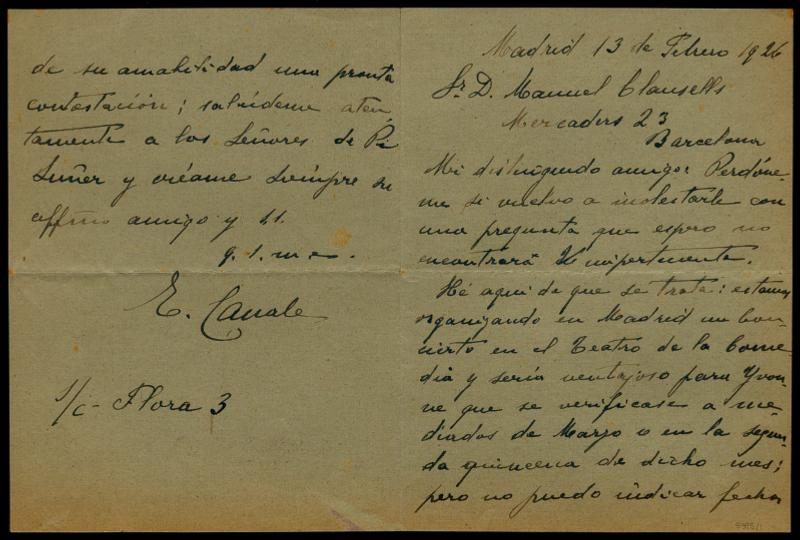 Madrid 13 de Febrero 1926
Sr. D. Manuel Clausells
Mercaders 23
Barcelona
Mi distinguido amigo: Perdóne-
me si vuelvo a molestarle con
una pregunta que espero no
encontrará V. impertinente.
Hé aqui de que se trata: estamos
organizando en Madrid un Con-
cierto en el Teatro de la Come
dia y sería ventajoso para Yvon-
ne que se verificase a me-
diados de Marzo o en la segun-
da quincena de dicho mes;
pero no puedo indicar fechas
de su amabilidad una pronta
contestación; salúdeme aten-
tamente a los Señores de Pi
Suñer y créame siempre su
affmo amigo y s.s.
q. s. m. e.
E. Canale
s/c - Flora 3